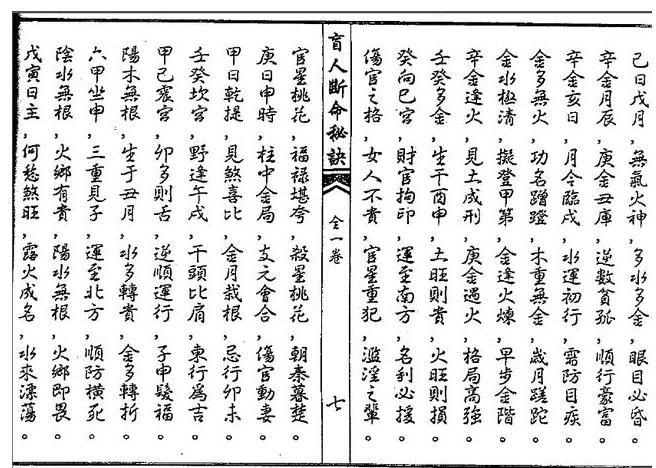 己日戌月，無氣火神，多水多金，眼目必昏。
辛金月辰，庚金丑庫，逆數貧孤，順行豪富。
辛金亥日，月令臨戌，水運初行，需防目疾。
金多無火，功名蹭蹬，木重無金，歲月蹉跎。
金水極清，擬登甲第，金逢火煉，早步金階。
辛金逢火，見土成刑，庚金遇火，格局高強。
壬癸多金，生于酉申，土旺則貴，火旺則損。
癸向巳宮，財官拘印，運至南方，名利必援。
傷官之格，女人不貴，官星重犯，濫淫之輩。
盲人斷命秘訣　全一卷　七
官星桃花，福祿堪夸，殺星桃花，朝秦暮楚。
庚日申時，柱中金局，支元會合，傷官動妻。
甲日乾提，見煞喜比，金月栽根，忌行卯未。
壬癸坎宮，野逢午戌，干頭比肩，東行為吉。
甲己震宮，卯多則舌，逆順運行，子申髮福。
陽木無根，生于丑月，水多轉貴，金多轉折。
六甲坐申，三重見子，運至北方，順防橫死。
陰水無根，火鄉有貴，陽水無根，火鄉即畏。
戊寅日主，何愁煞旺，露火成名，水來漂蕩。